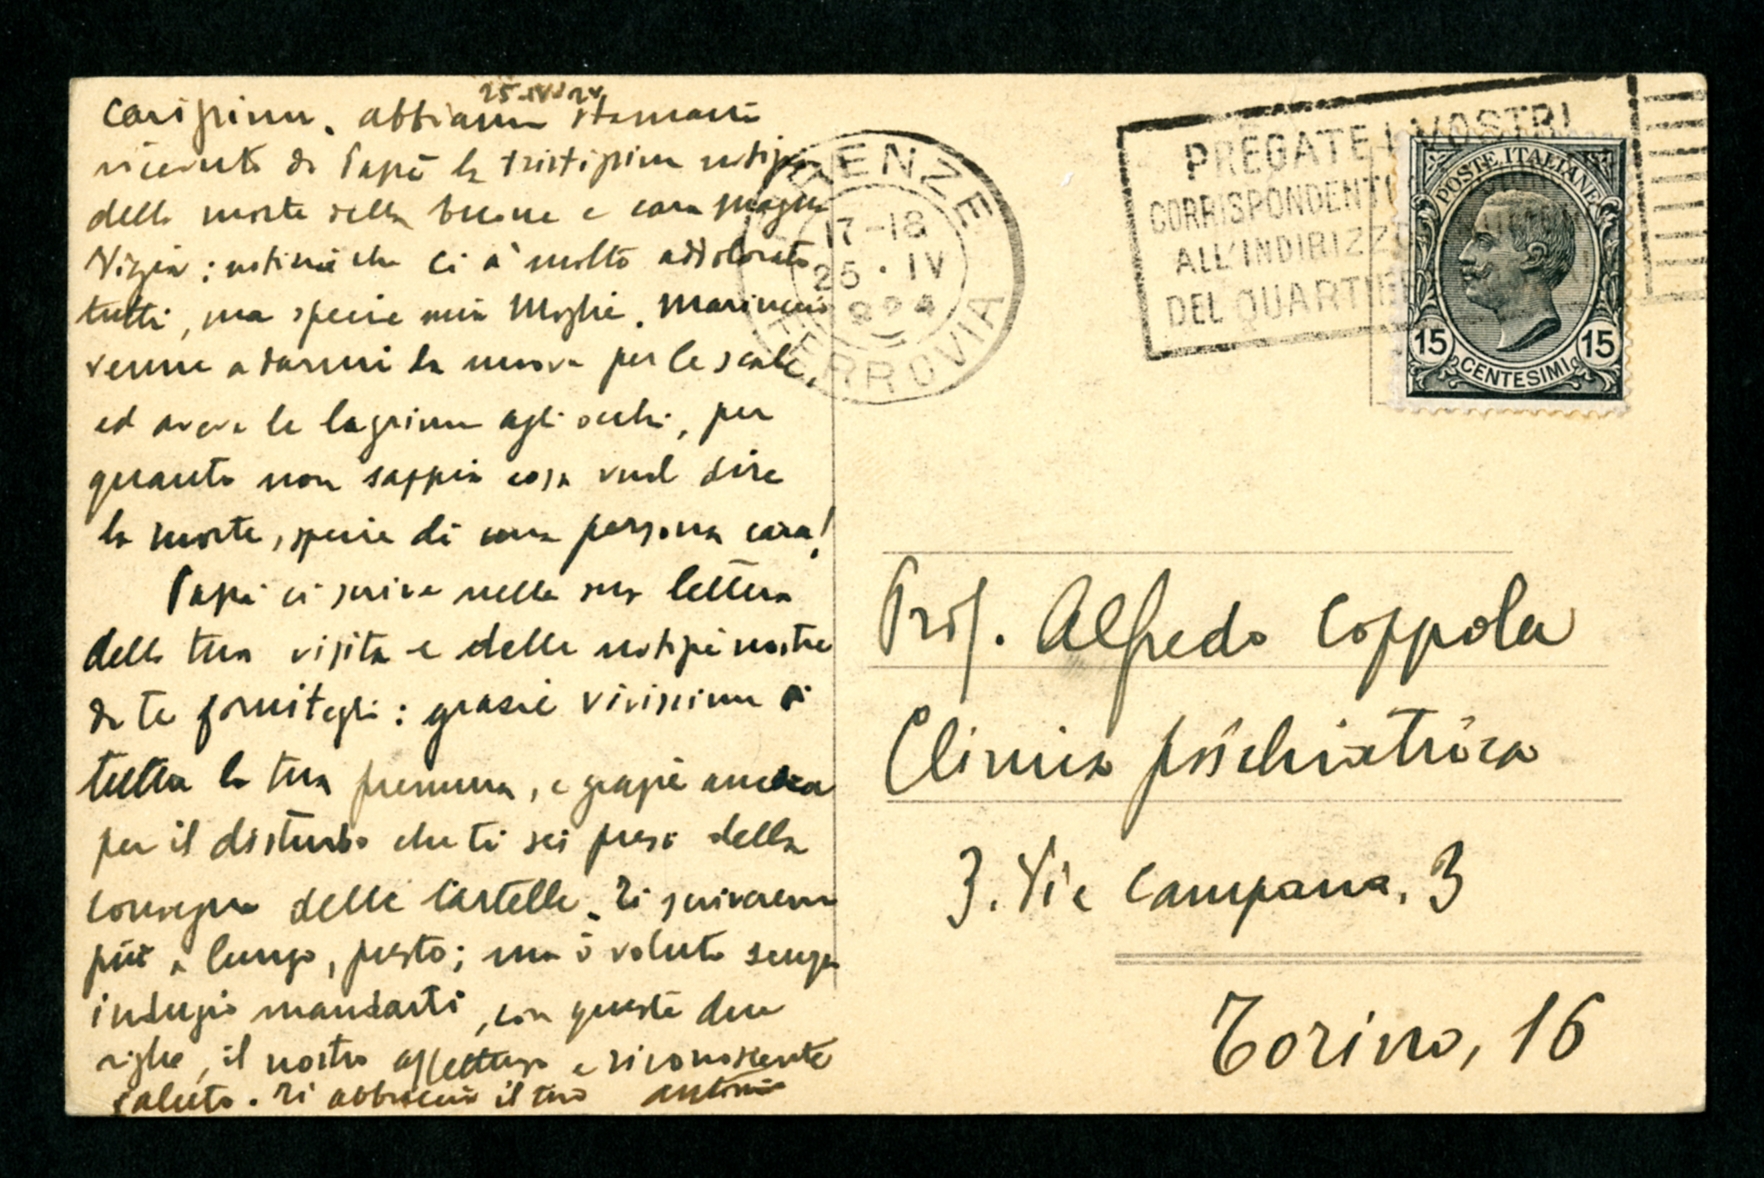 25-IV-24
Carissimo, abbiamo stamani
ricevuto da Papà la tristissima notizia
della morte della buona e cara
: notizia che ci à molto addolorato
tutti, ma specie mia Moglie. Mariuccia
venne a darmi la nuova per le scale,
ed aveva le lagrime agli occhi, per
quanto non sappia cosa vuol dire
la morte, specie di una persona cara!
Papà ci scrive nella sua lettera
della tua visita e delle notizie nostre
da te fornitegli: grazie vivissime di
tutta la tua premura, e grazie ancora
per il disturbo che ti sei preso della
consegna delle Cartelle. Ti scriveremo
più a lungo, presto; ma ò voluto senza
indugio mandarti, con queste due
righe, il nostro affettuoso e riconoscente
saluto. Ti abbraccia il tuo Antonio
FIRENZE
17-18
25 · IV
924
FERROVIA
PREGATE I VOSTRI
CORRISPONDENTI
ALL'INDIRIZZO
DEL QUARTIERE
POSTE ITALIANE
15 15
CENTESIMI
Prof. Alfredo Coppola
Clinica psichiatrica
3. Via Campana. 3
Torino, 16